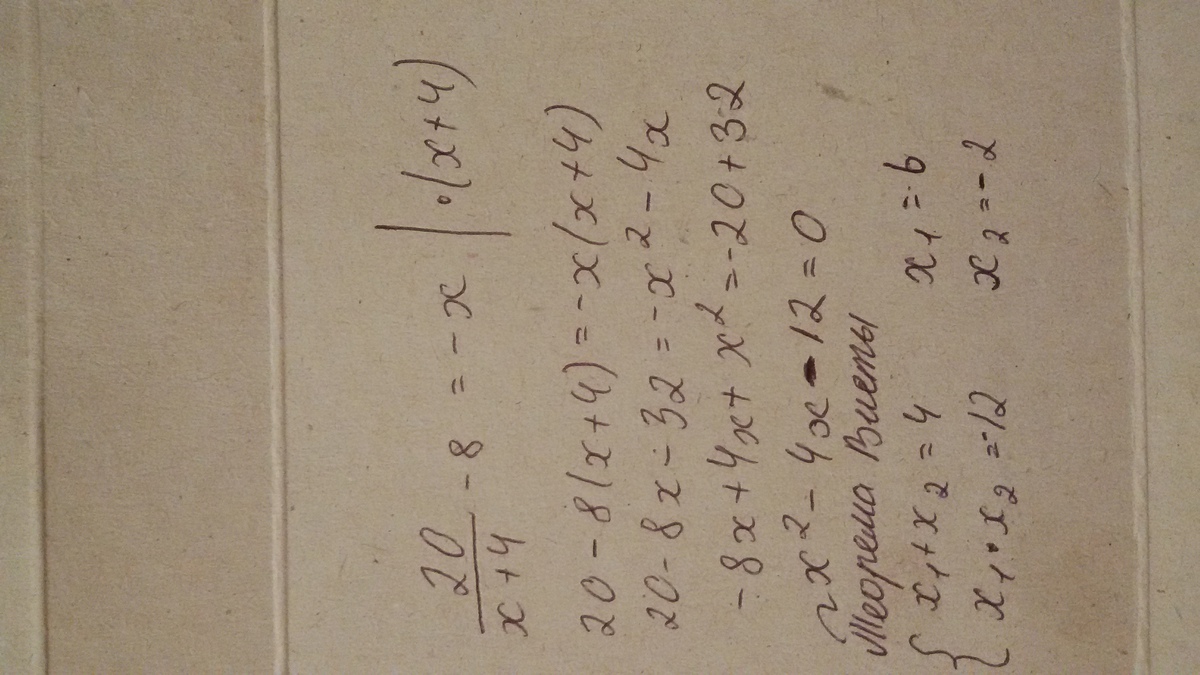 20/(x+4) - 8 = -x | ·(x+4)
20 - 8(x+4) = -x(x+4)
20 - 8x - 32 = -x² - 4x
-8x + 4x + x² = -20 + 32
x² - 4x - 12 = 0
Теорема Виеты
{ x₁ + x₂ = 4 x₁ = 6
x₁ · x₂ = -12 x₂ = -2